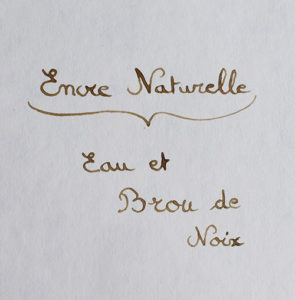 Encre Naturelle
Eau et
Brou de
Noix